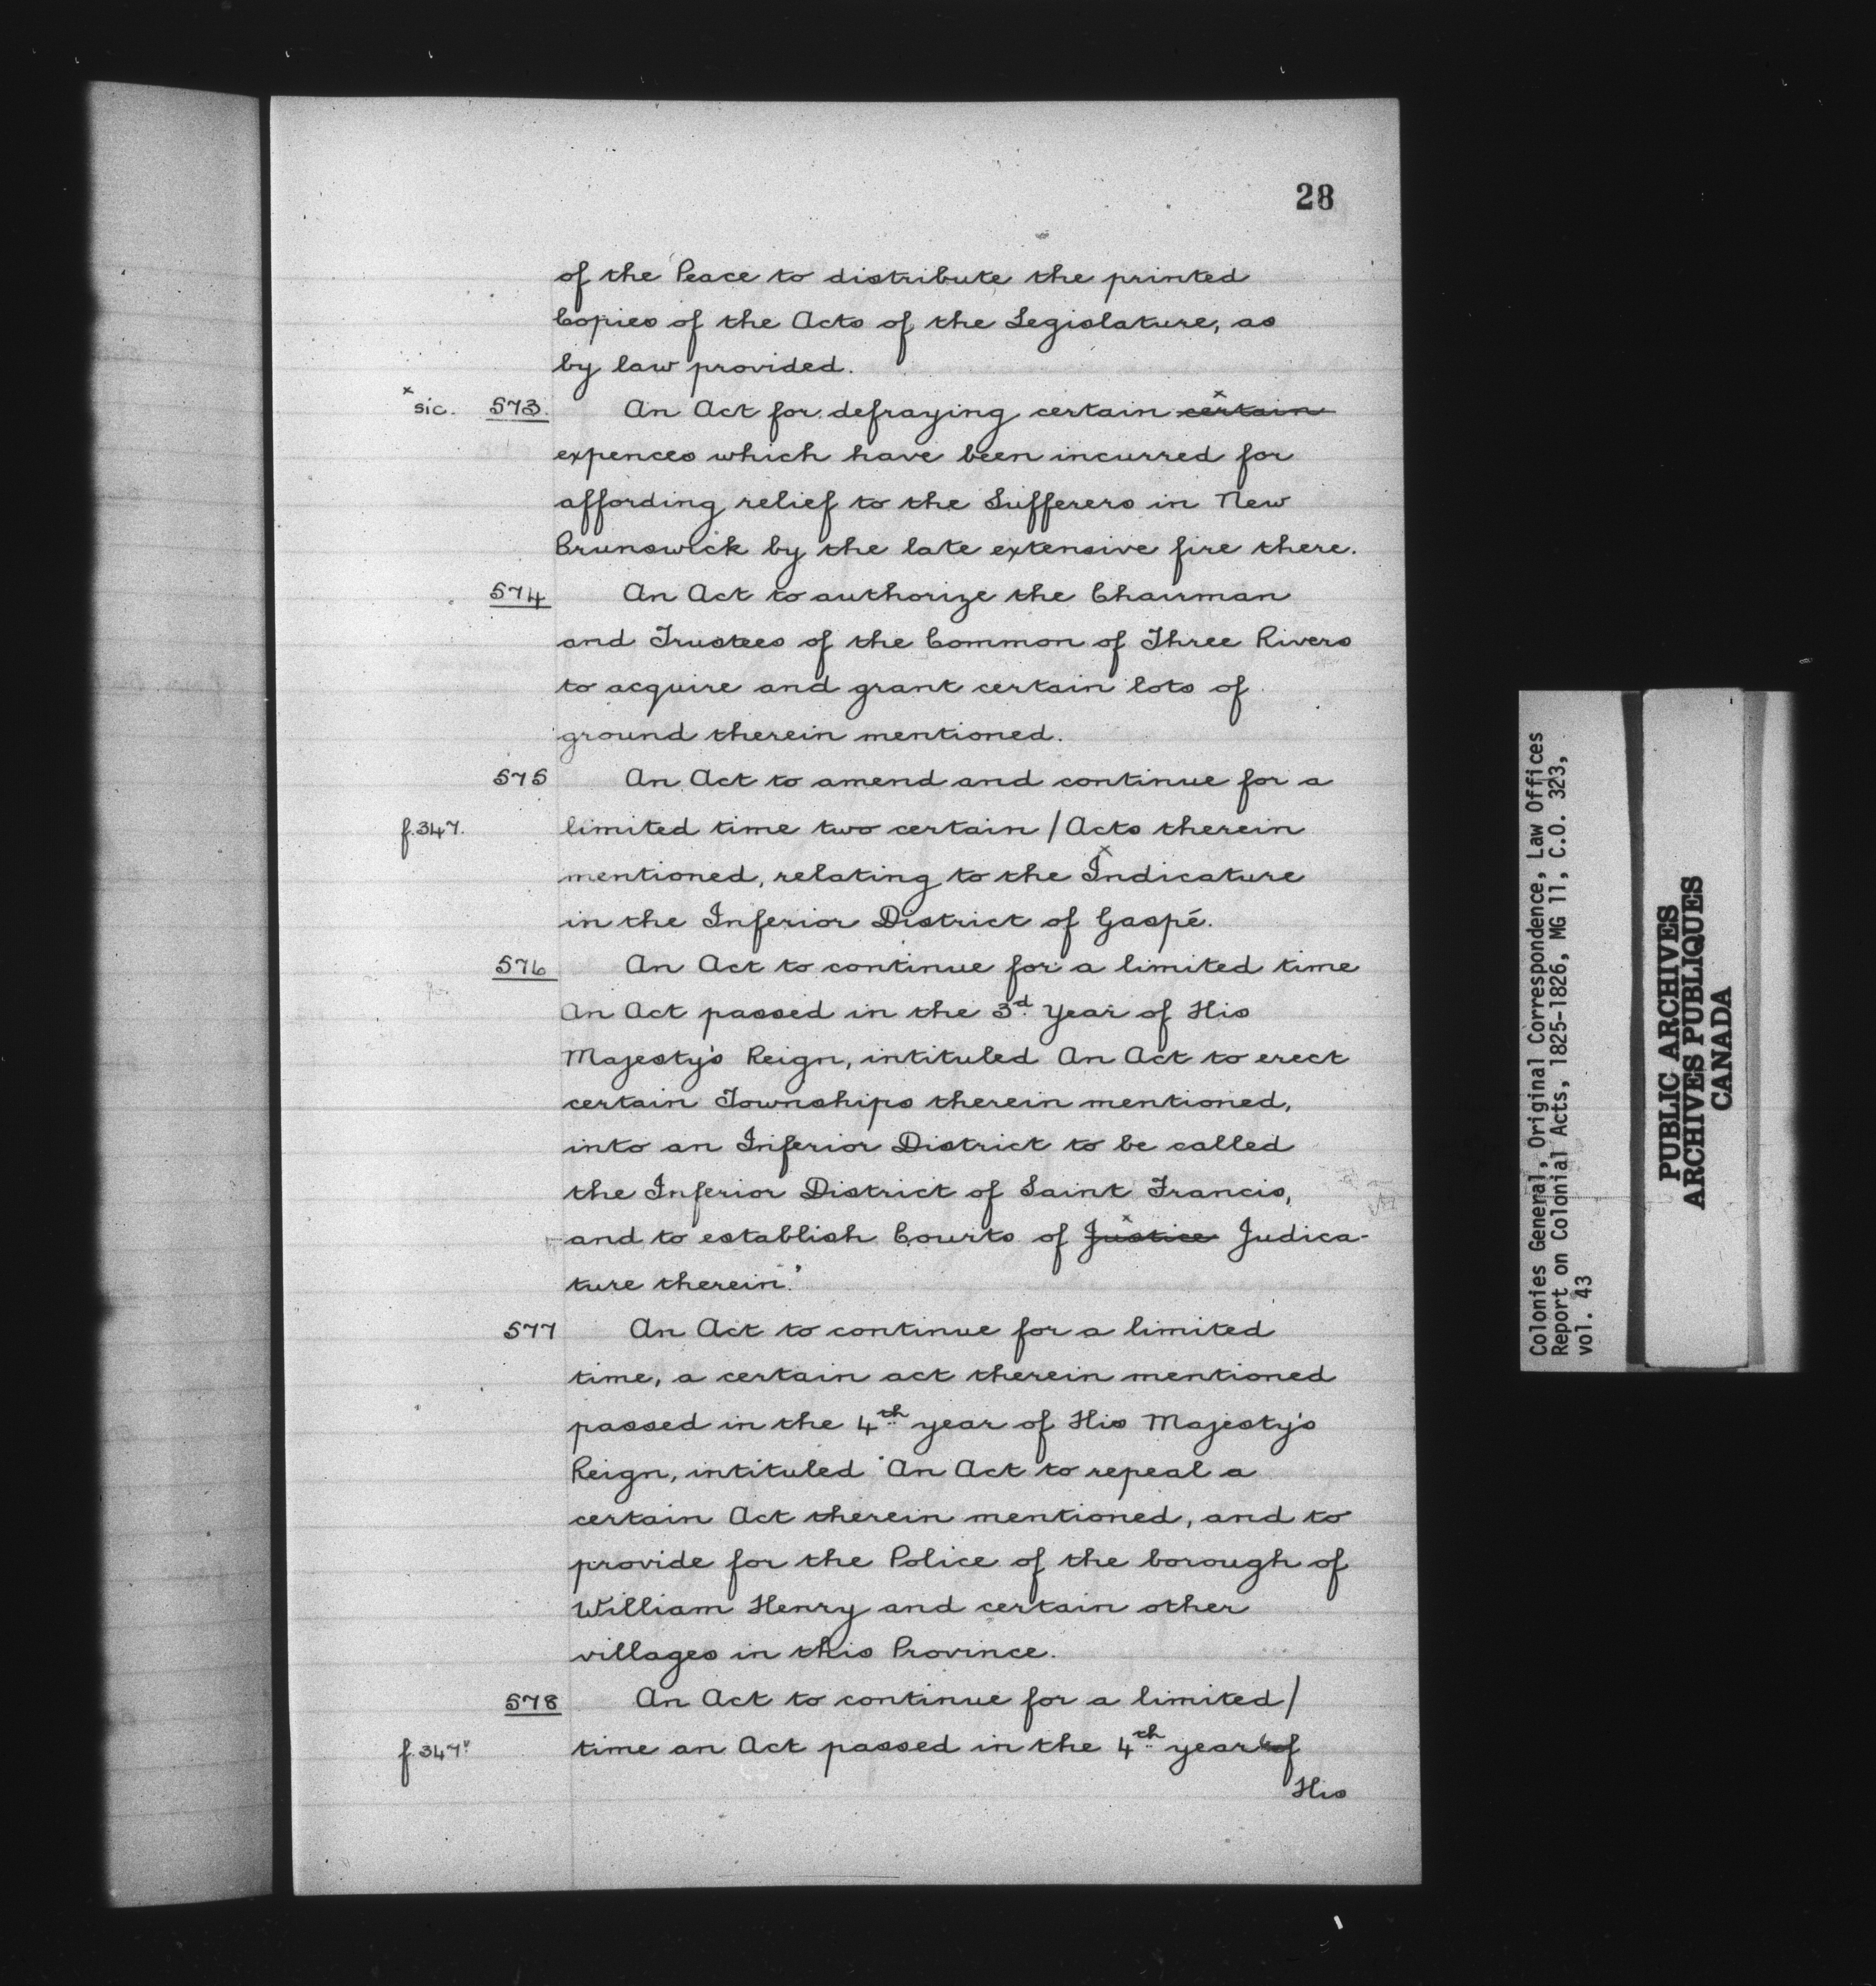 28
of the Peace to distribute the printed
Copies of the Acts of the Legislature, as
by law provided.
x sic. 573. An Act for defraying certain certain x
expences which have been incurred for
affording relief to the Sufferers in New
Brunswick by the late extensive fire there.
574 An Act to authorize the Chairman
and Trustees of the Common of Three Rivers
to acquire and grant certain lots of
ground therein mentioned.
575 An Act to amend and continue for a
f.347. limited time two certain / Acts therein
mentioned, relating to the Indicature
in the Inferior District of Gaspé.
576 An Act to continue for a limited time
An Act passed in the 3d. Year of His
Majesty's Reign, intituled An Act to erect
certain Townships therein mentioned,
into an Inferior District to be called
the Inferior District of Saint Francis,
and to establish Courts of Justice Judica-
ture therein."
577 An Act to continue for a limited
time, a certain act therein mentioned
passed in the 4th year of His Majesty's
Reign, intituled "An Act to repeal a
certain Act therein mentioned, and to
provide for the Police of the borough of
William Henry and certain other
villages in this Province.
578 An Act to continue for a limited /
f.347v time an Act passed in the 4th year of
His
Colonies General, Original Correspondence, Law Offices
Report on Colonial Acts, 1825-1826, MG 11, C.O. 323,
vol. 43
PUBLIC ARCHIVES
ARCHIVES PUBLIQUES
CANADA